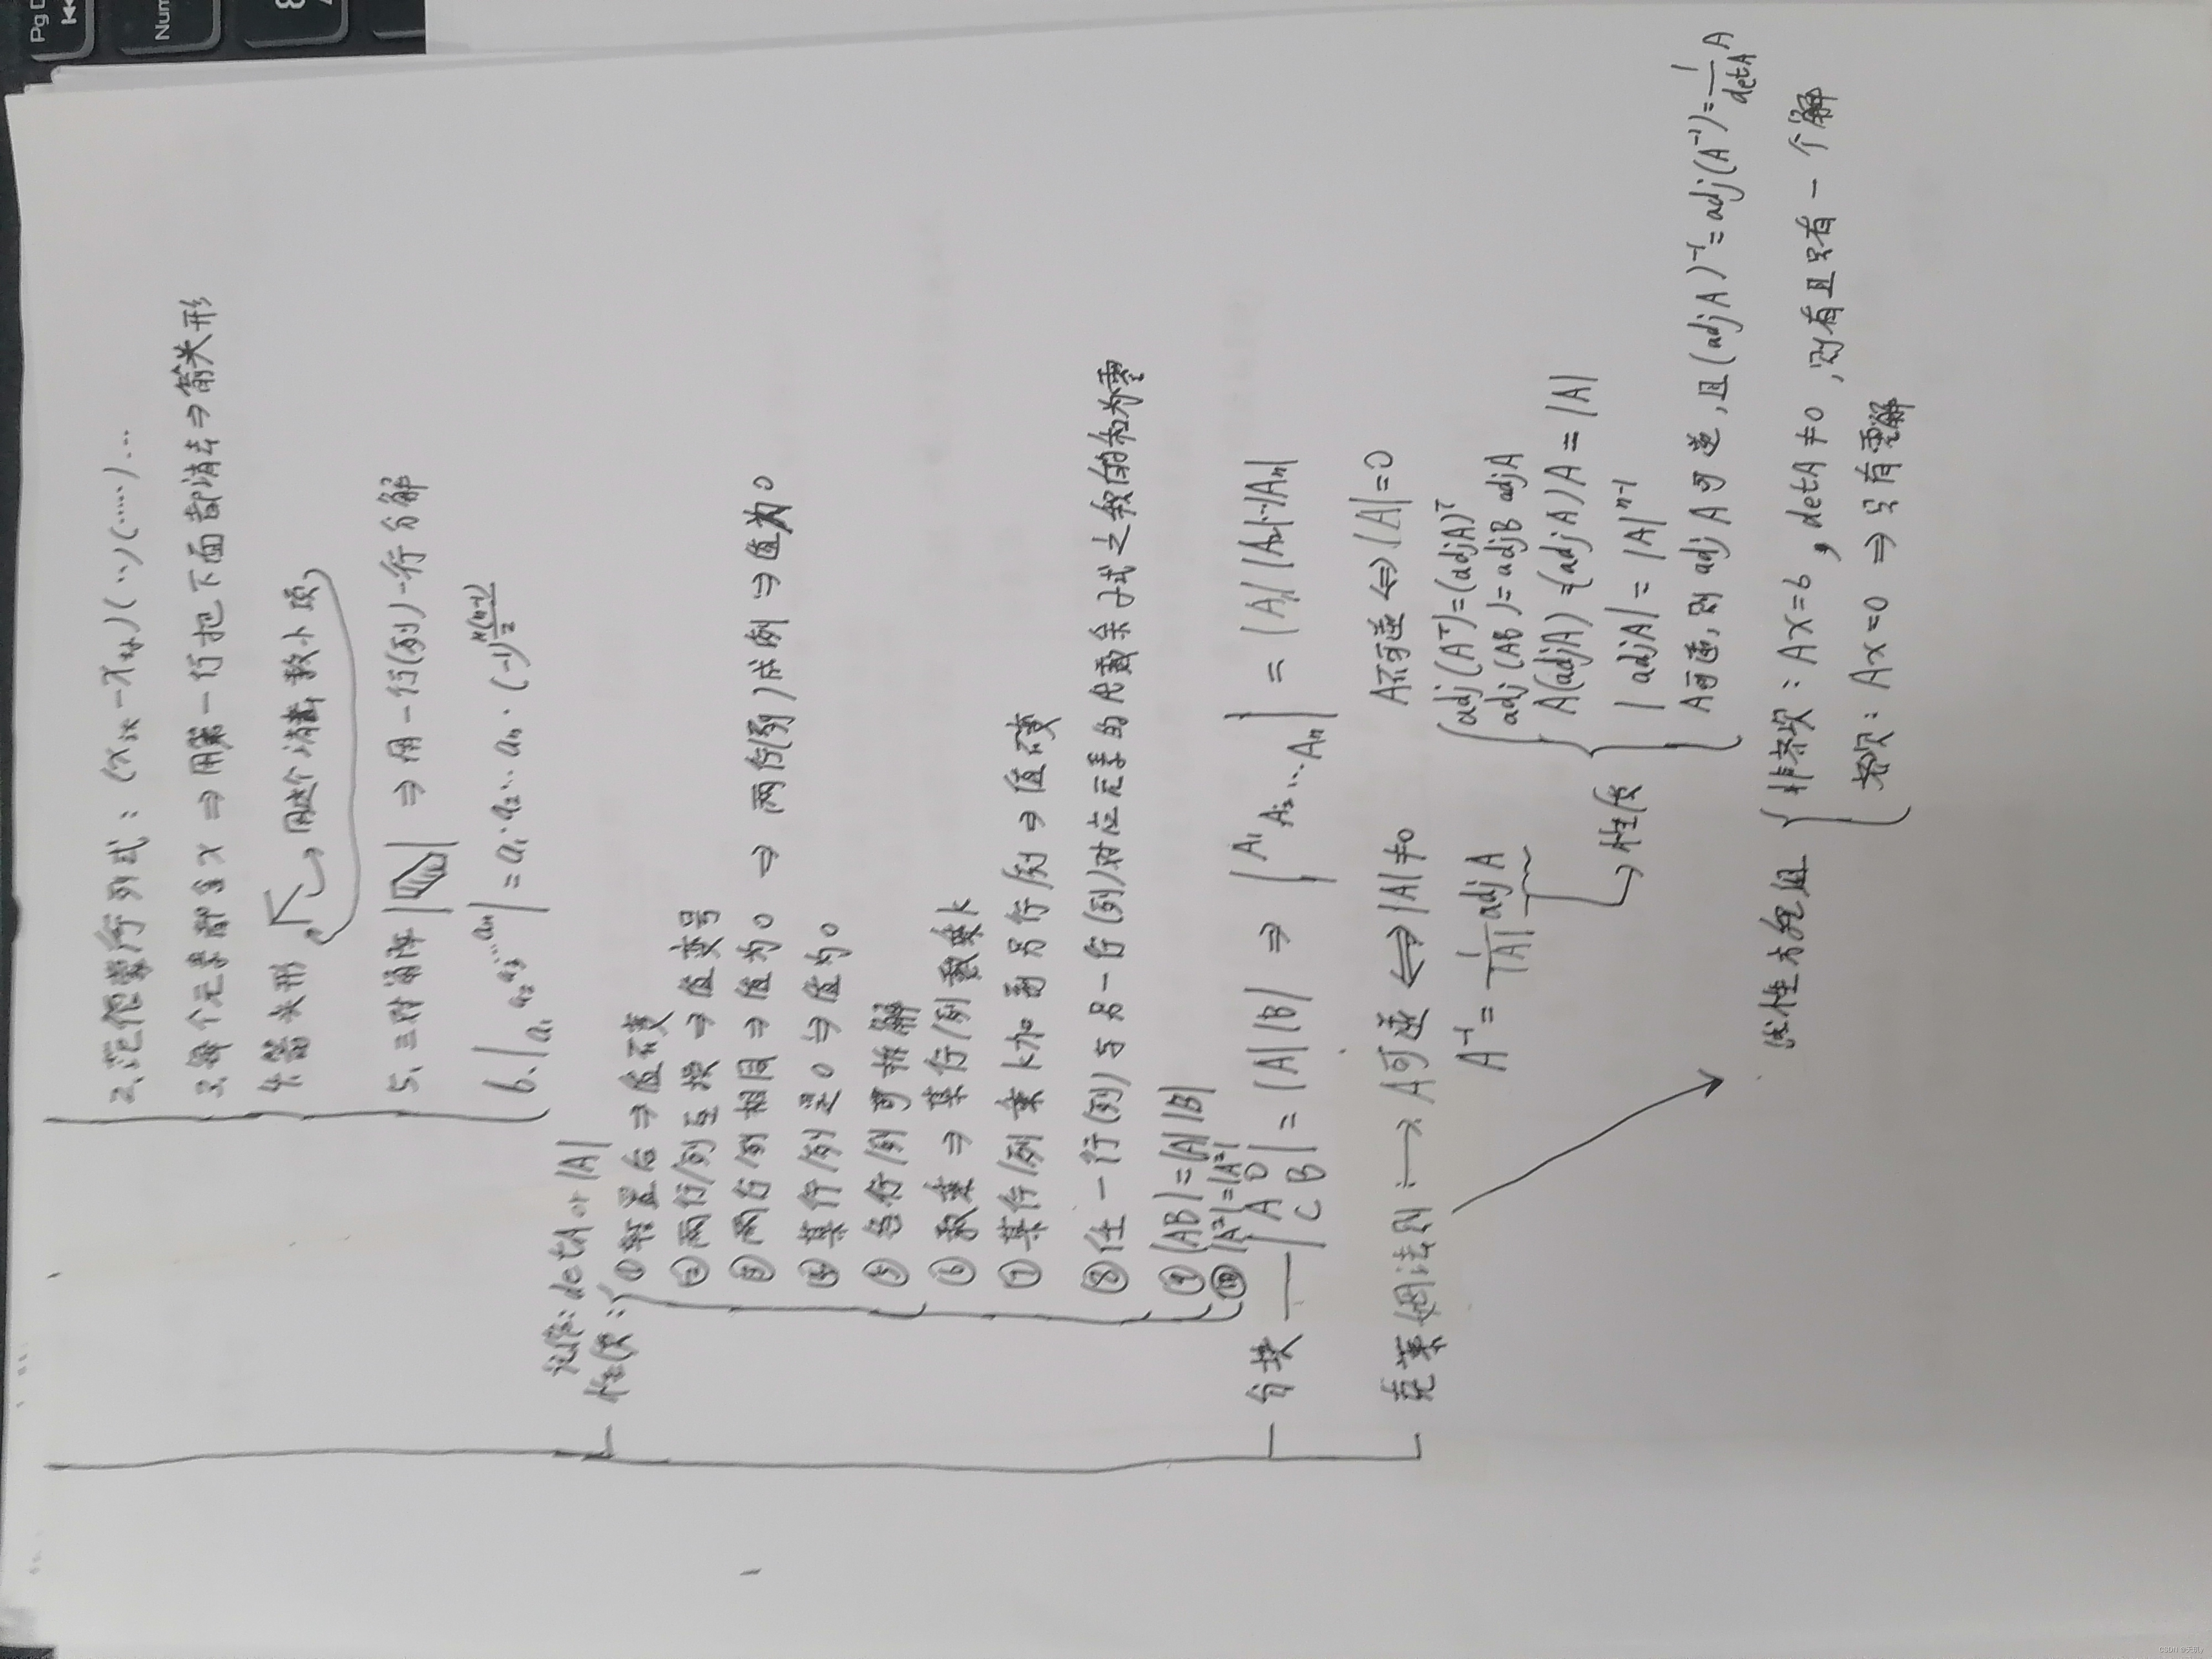 2. 范德蒙行列式：(x大-x小)(…)(……)…
3. 每个元素都含x ⇒ 用第一行把下面都消去⇒箭头形
4. 箭头形 用这个消 数小 项
5. 三对角阵 ⇒ 用一行(列)一行分解
6. | a₁ a₂ a₃ … aₙ | = a₁·a₂…aₙ·(-1)^{n(n-1)/2}
记作: detA or |A|
性质:
① 转置后 ⇒ 值不变
② 两行/列互换 ⇒ 值变号
③ 两行/列相同 ⇒ 值为0 ⇒ 两行(列)成例 ⇒ 值为0
④ 某行/列是0 ⇒ 值为0
⑤ 行/列可拆解
⑥ 数乘 ⇒ 某行/列数乘k
⑦ 某行/列乘k加到另行/列 ⇒ 值不变
⑧ 任一行(列)与另一行(列)对应元素的代数余子式之乘的和为零
⑨ |AB|=|A||B|
⑩ |A²|=|A²|
分块 — |A 0 C B| = |A||B| ⇒ |A₁ A₂ … Aₙ| = |A₁||A₂|…|Aₙ|
克莱姆法则: → A可逆 ⟺ |A|≠0 A不可逆 ⇔ |A|=0
A⁻¹ = 1/|A| adjA
性质
adj(Aᵀ)=(adjA)ᵀ
adj(AB)=adjB adjA
A(adjA)=(adjA)A=|A|
|adjA|=|A|ⁿ⁻¹
A可逆, 则adjA可逆, 且(adjA)⁻¹=adj(A⁻¹)=1/detA A
线性方程组
非齐次: Ax=b, detA≠0, 则有且只有一个解
齐次: Ax=0 ⇒ 只有零解
CSDN